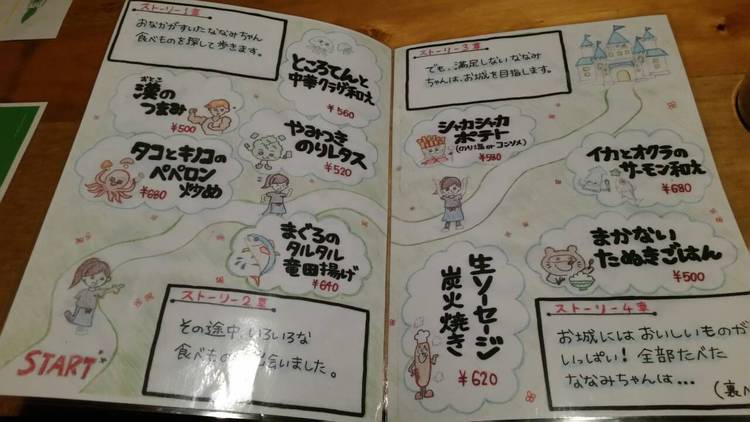 ストーリー1章
おなかがすいたななみちゃん
食べものを探して歩きます。
ところてんと
中華クラゲ和え
¥560
おとこ
漢の
つまみ
¥500
やみつき
のりレタス
¥520
タコとキノコの
ペペロン
炒め
¥680
まぐろの
タルタル
竜田揚げ
¥640
START
ストーリー2章
その途中、いろいろな
食べもの
会いました。
ストーリー3章
でも、満足しないななみ
ちゃんは、お城を目指します。
シャカシャカ
ポテト
(のり塩 or コンソメ)
¥580
イカとオクラの
サーモン和え
¥680
まかない
たぬきごはん
¥500
生ソーセージ
炭火焼き
¥620
ストーリー4章
お城にはおいしいものが
いっぱい！全部たべた
ななみちゃんは…
(裏